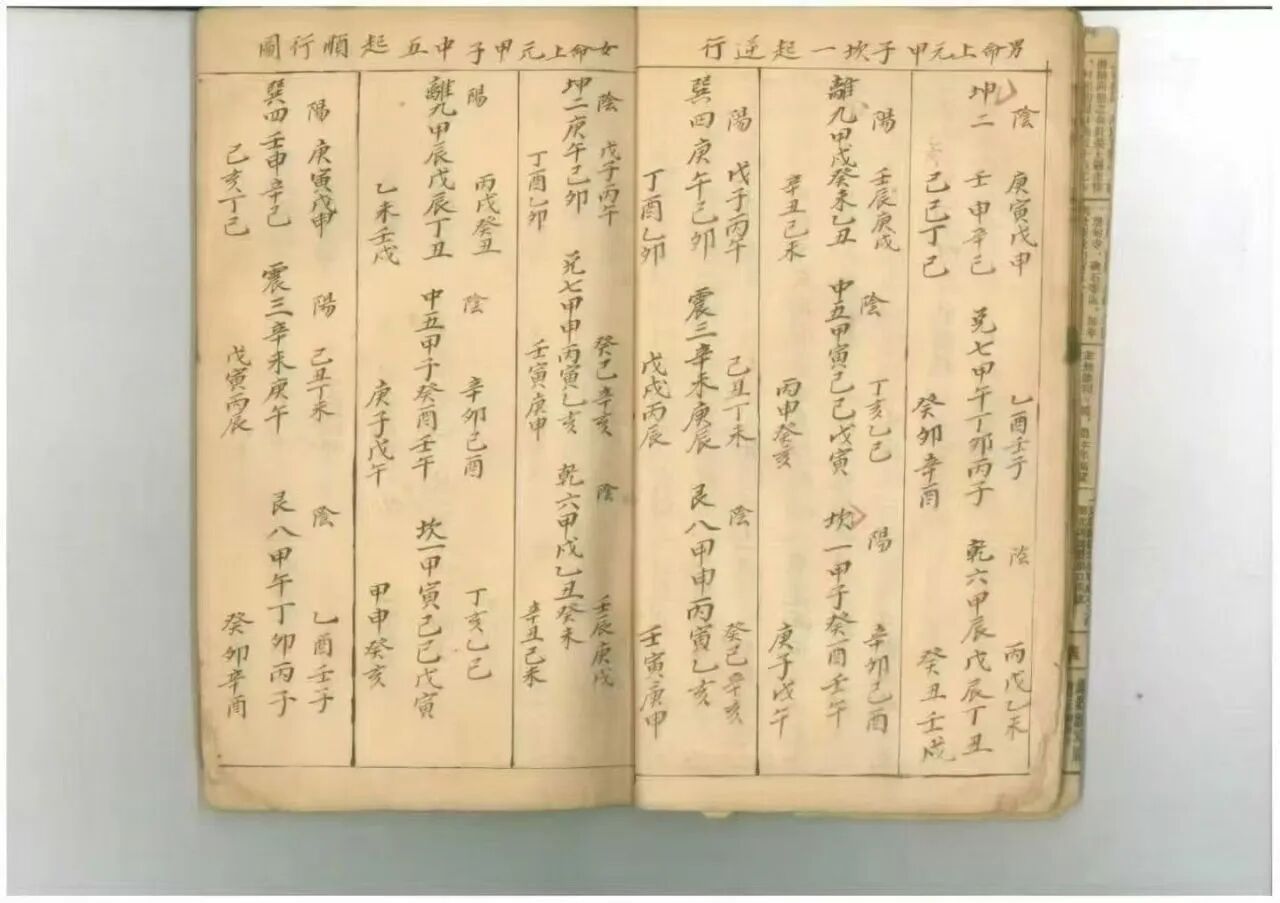 男命上元甲子坎一起逆行
陰 庚寅戊申 乙酉壬子 陰 丙戊乙未
坤二 壬申辛己 兑七甲午丁卯丙子 乾六甲辰戊辰丁丑
己己丁己 癸卯辛酉 癸丑壬戍
陽 壬辰庚戍 陰 丁亥乙己 陽 辛卯己酉
離九甲戍癸未乙丑 中五甲寅己己戊寅 坎一甲子癸酉壬午
辛丑己未 丙申癸亥 庚子戊午
陽 戊子丙午 己丑丁未 陰 癸己辛亥
巽四庚午己卯 震三辛未庚辰 艮八甲申丙寅乙亥
丁酉乙卯 戊戍丙辰 壬寅庚申
女命上元甲子中五起順行圖
陰 戊子丙午 癸己辛亥 陰 壬辰庚戍
坤二庚午己卯 兑七甲申丙寅乙亥 乾六甲戊乙丑癸未
丁酉乙卯 壬寅庚申 辛丑己未
陽 丙戊癸丑 陰 辛卯己酉 丁亥乙己
離九甲辰戊辰丁丑 中五甲子癸酉壬午 坎一甲寅己己戊寅
乙未壬戍 庚子戊午 甲申癸亥
陽 庚寅戊申 陽 己丑丁未 陰 乙酉壬子
巽四壬申辛己 震三辛未庚午 艮八甲午丁卯丙子
己亥丁己 戊寅丙辰 癸卯辛酉